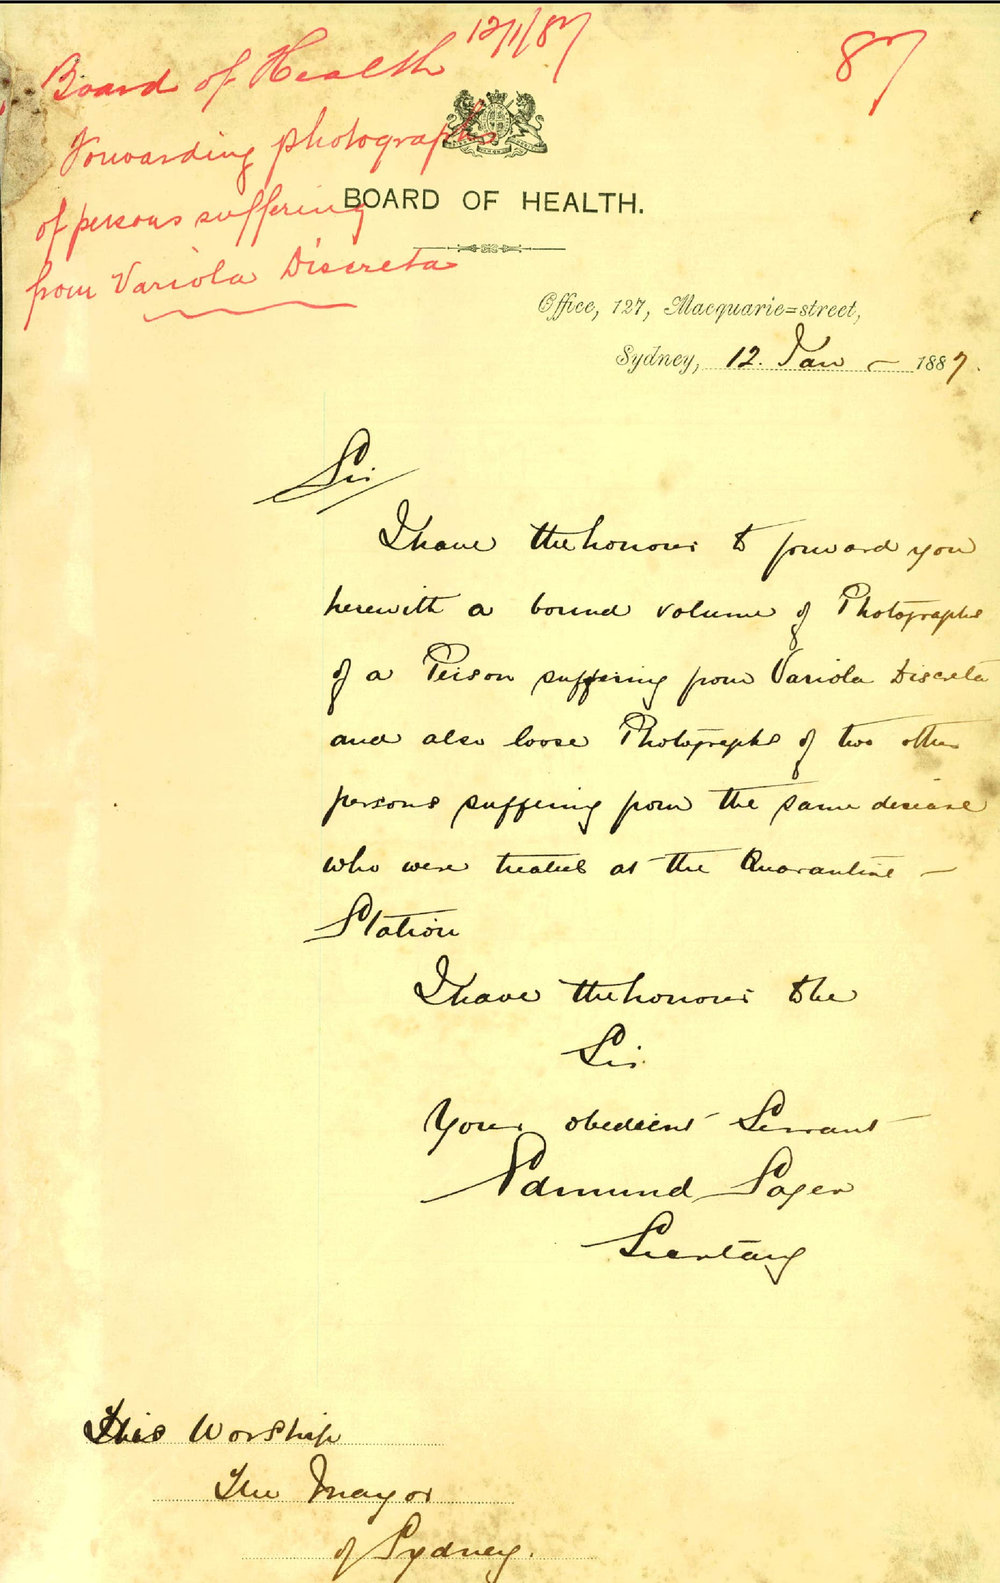 Board of Health 12/1/87
Forwarding photographs
of persons suffering
from Variola Discreta
87
BOARD OF HEALTH.
Office, 127, Macquarie=street,
Sydney, 12. Jan 1887.
Sir
I have the honour to forward you
herewith a bound volume of Photographs
of a Person suffering from Variola Discreta
and also loose Photographs of two other
persons suffering from the same disease
who were treated at the Quarantine
Station
I have the honour to be
Sir
Your obedient Servant
Edmund Sager
Secretary
His Worship
The Mayor
of Sydney.